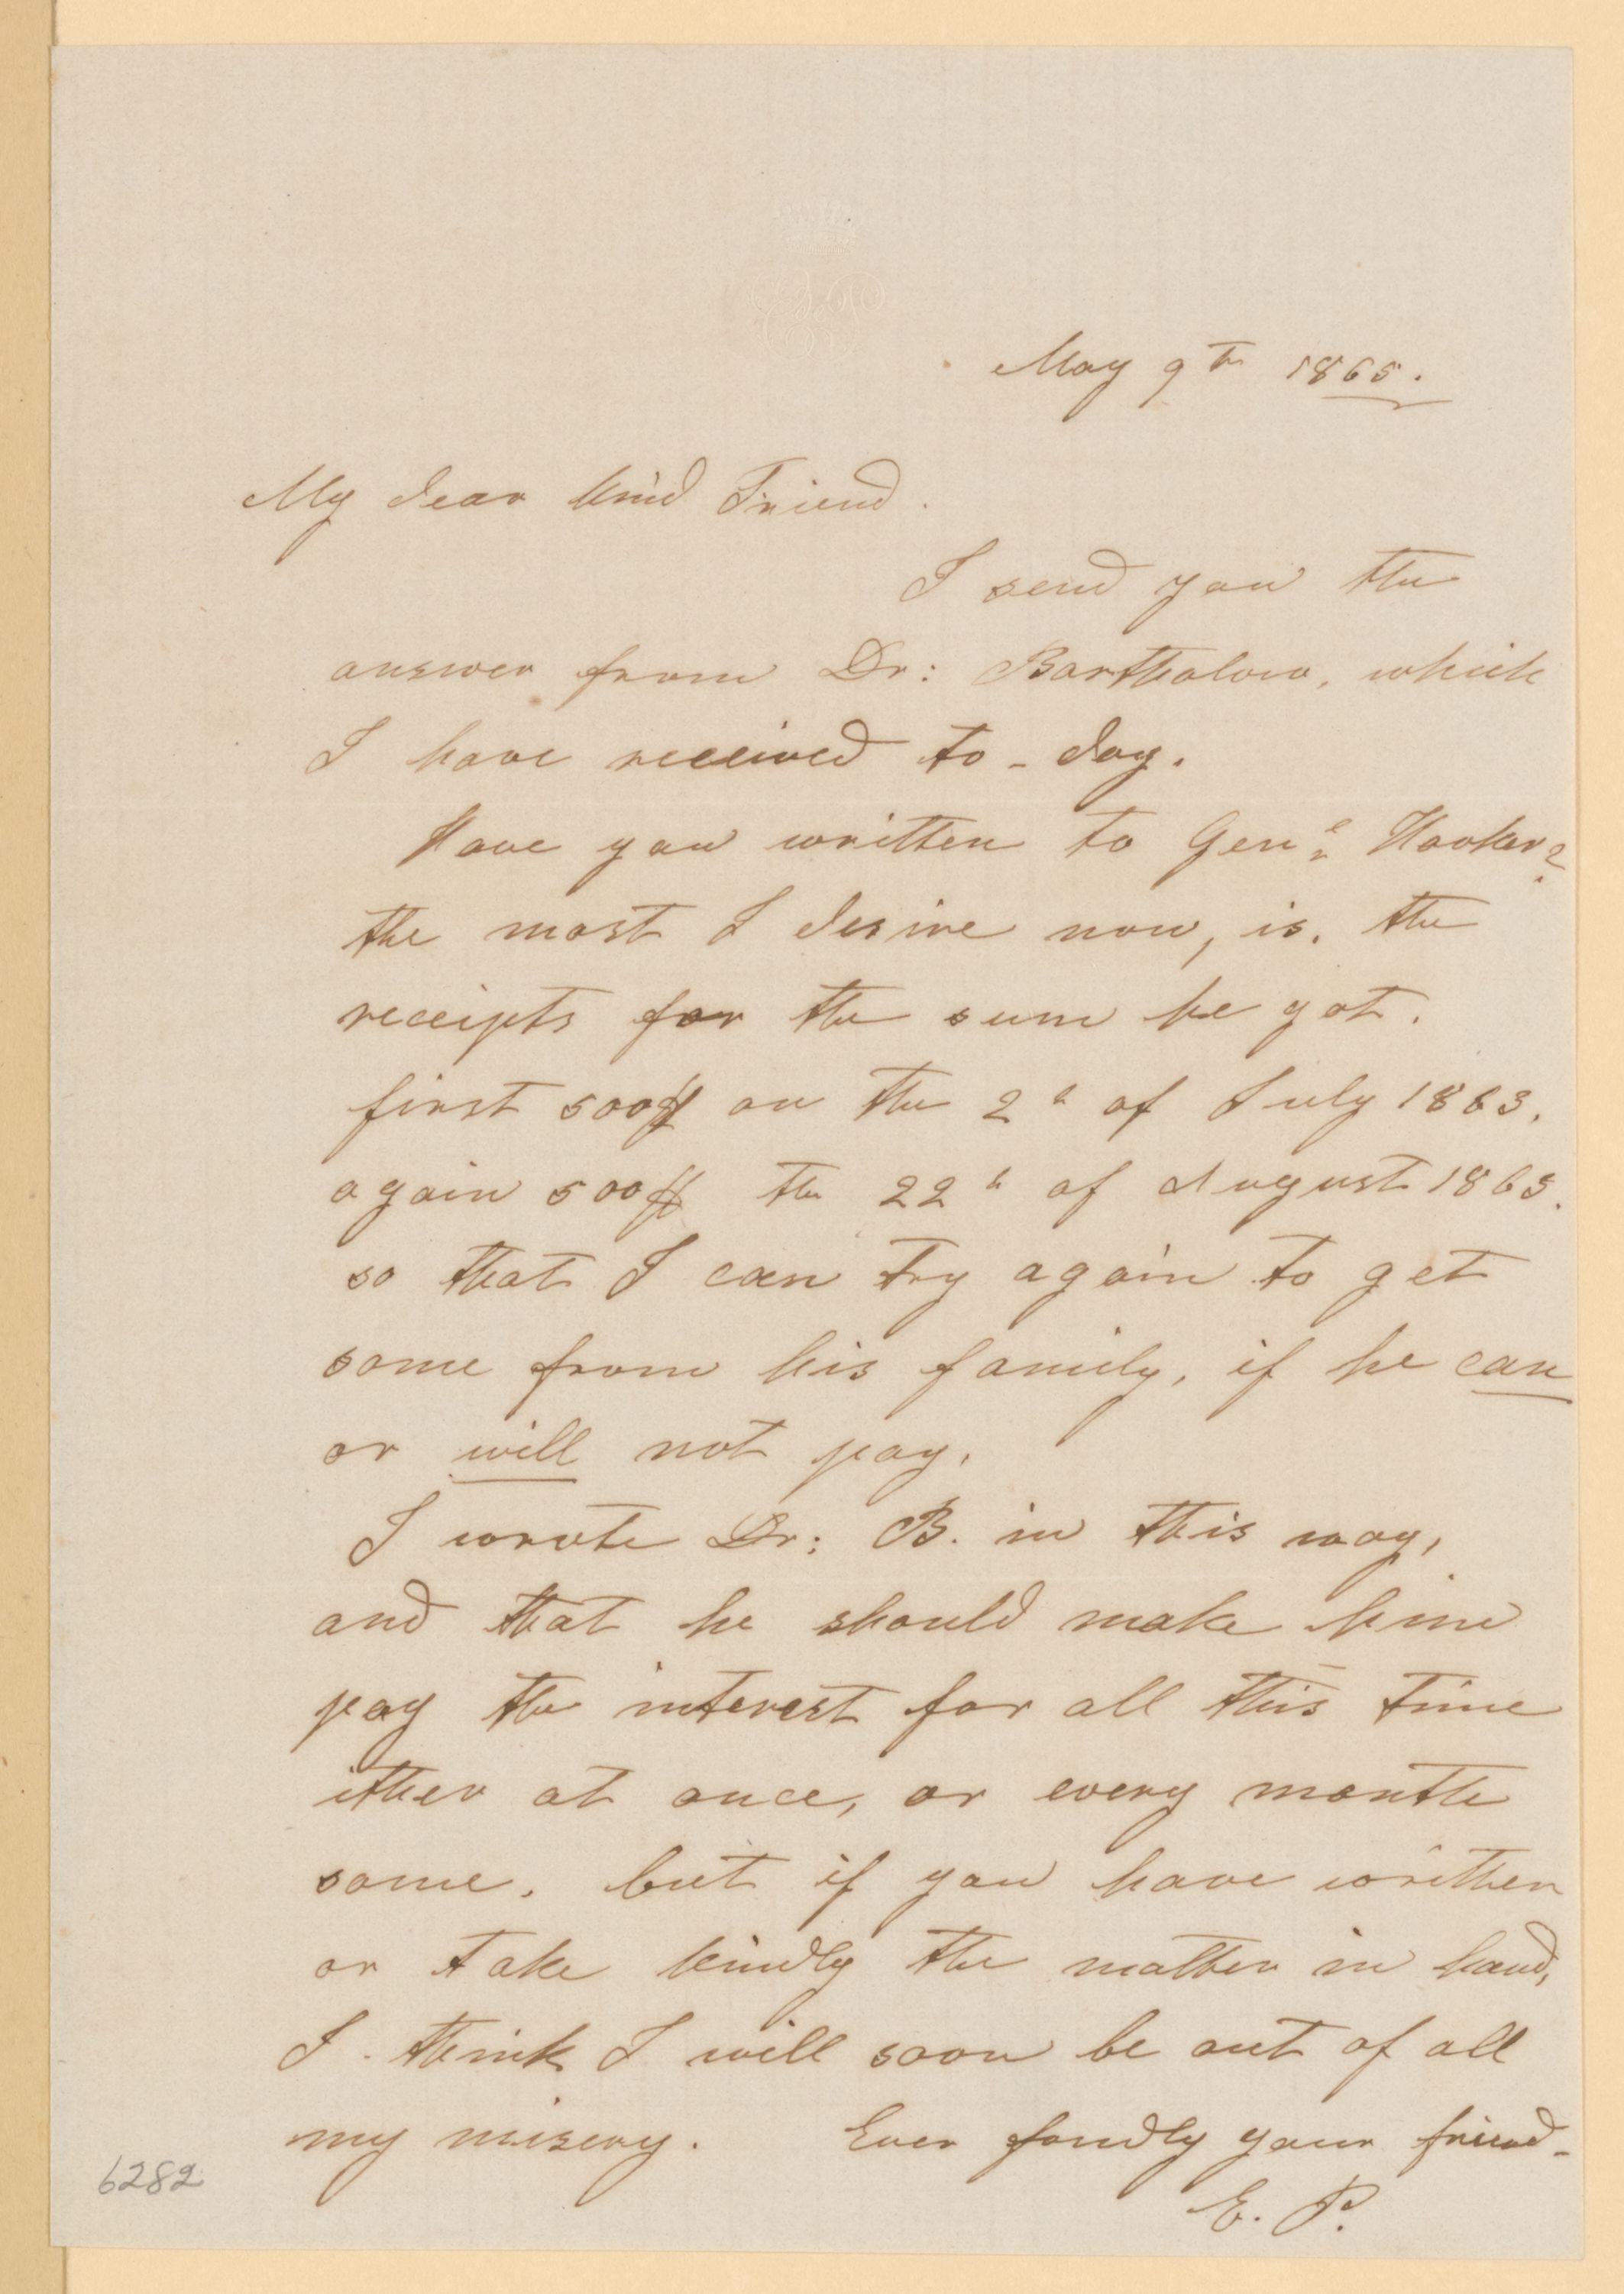 May 9th 1865.
My dear kind Friend.
I send you the
answer from Dr: Bartholow, which
I have received to-day.
Have you written to Genl Hooker?
the most I desire now, is, the
receipts for the sum he got.
first 500$ on the 2d of July 1863.
again 500$ the 22d of August 1863.
so that I can try again to get
some from his family, if he can
or will not pay.
I wrote Dr: B. in this way,
and that he should make him
pay the interest for all this time
ither at once, or every month
some. but if you have written
or take kindly the matter in hand,
I think I will soon be out of all
my misery. Ever fondly your friend-
E. P.
6282